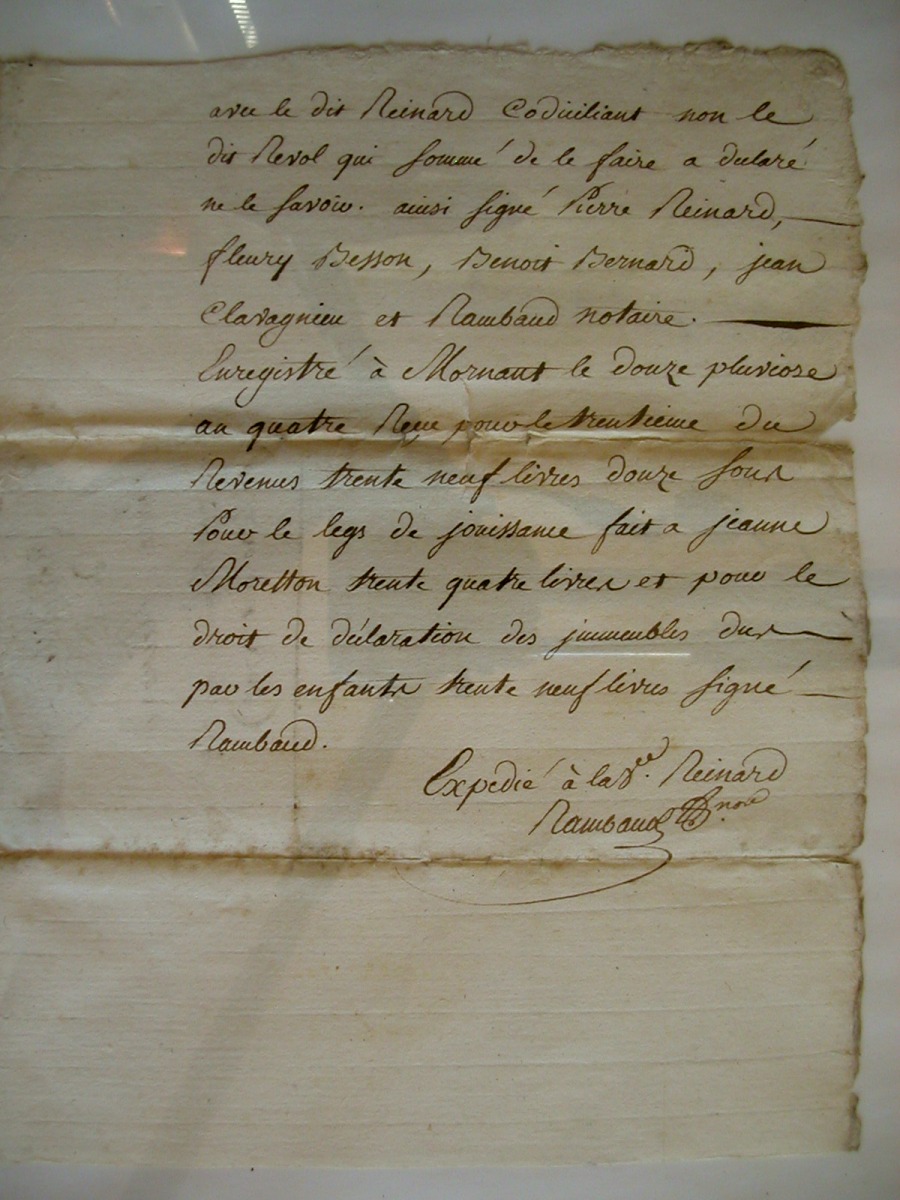 avec le dit Reinard Codiciliant non le
dit Revol qui sommé de le faire a déclaré
ne le savoir. ainsi signé Pierre Reinard,
fleury Besson, Benoit Bernard, jean
Clavagnieu et Rambaud notaire.
Enregistré à Mornant le douze pluviose
an quatre Reçu pour le trentieme du
Revenus trente neuf livres douze sous
Pour le legs de jouissance fait a jeanne
Moretton trente quatre livres et pour le
droit de déclaration des immeubles dus
par les enfants trente neuf livres signé
Rambaud.
Expedié à la Vee. Reinard
Rambaud nore